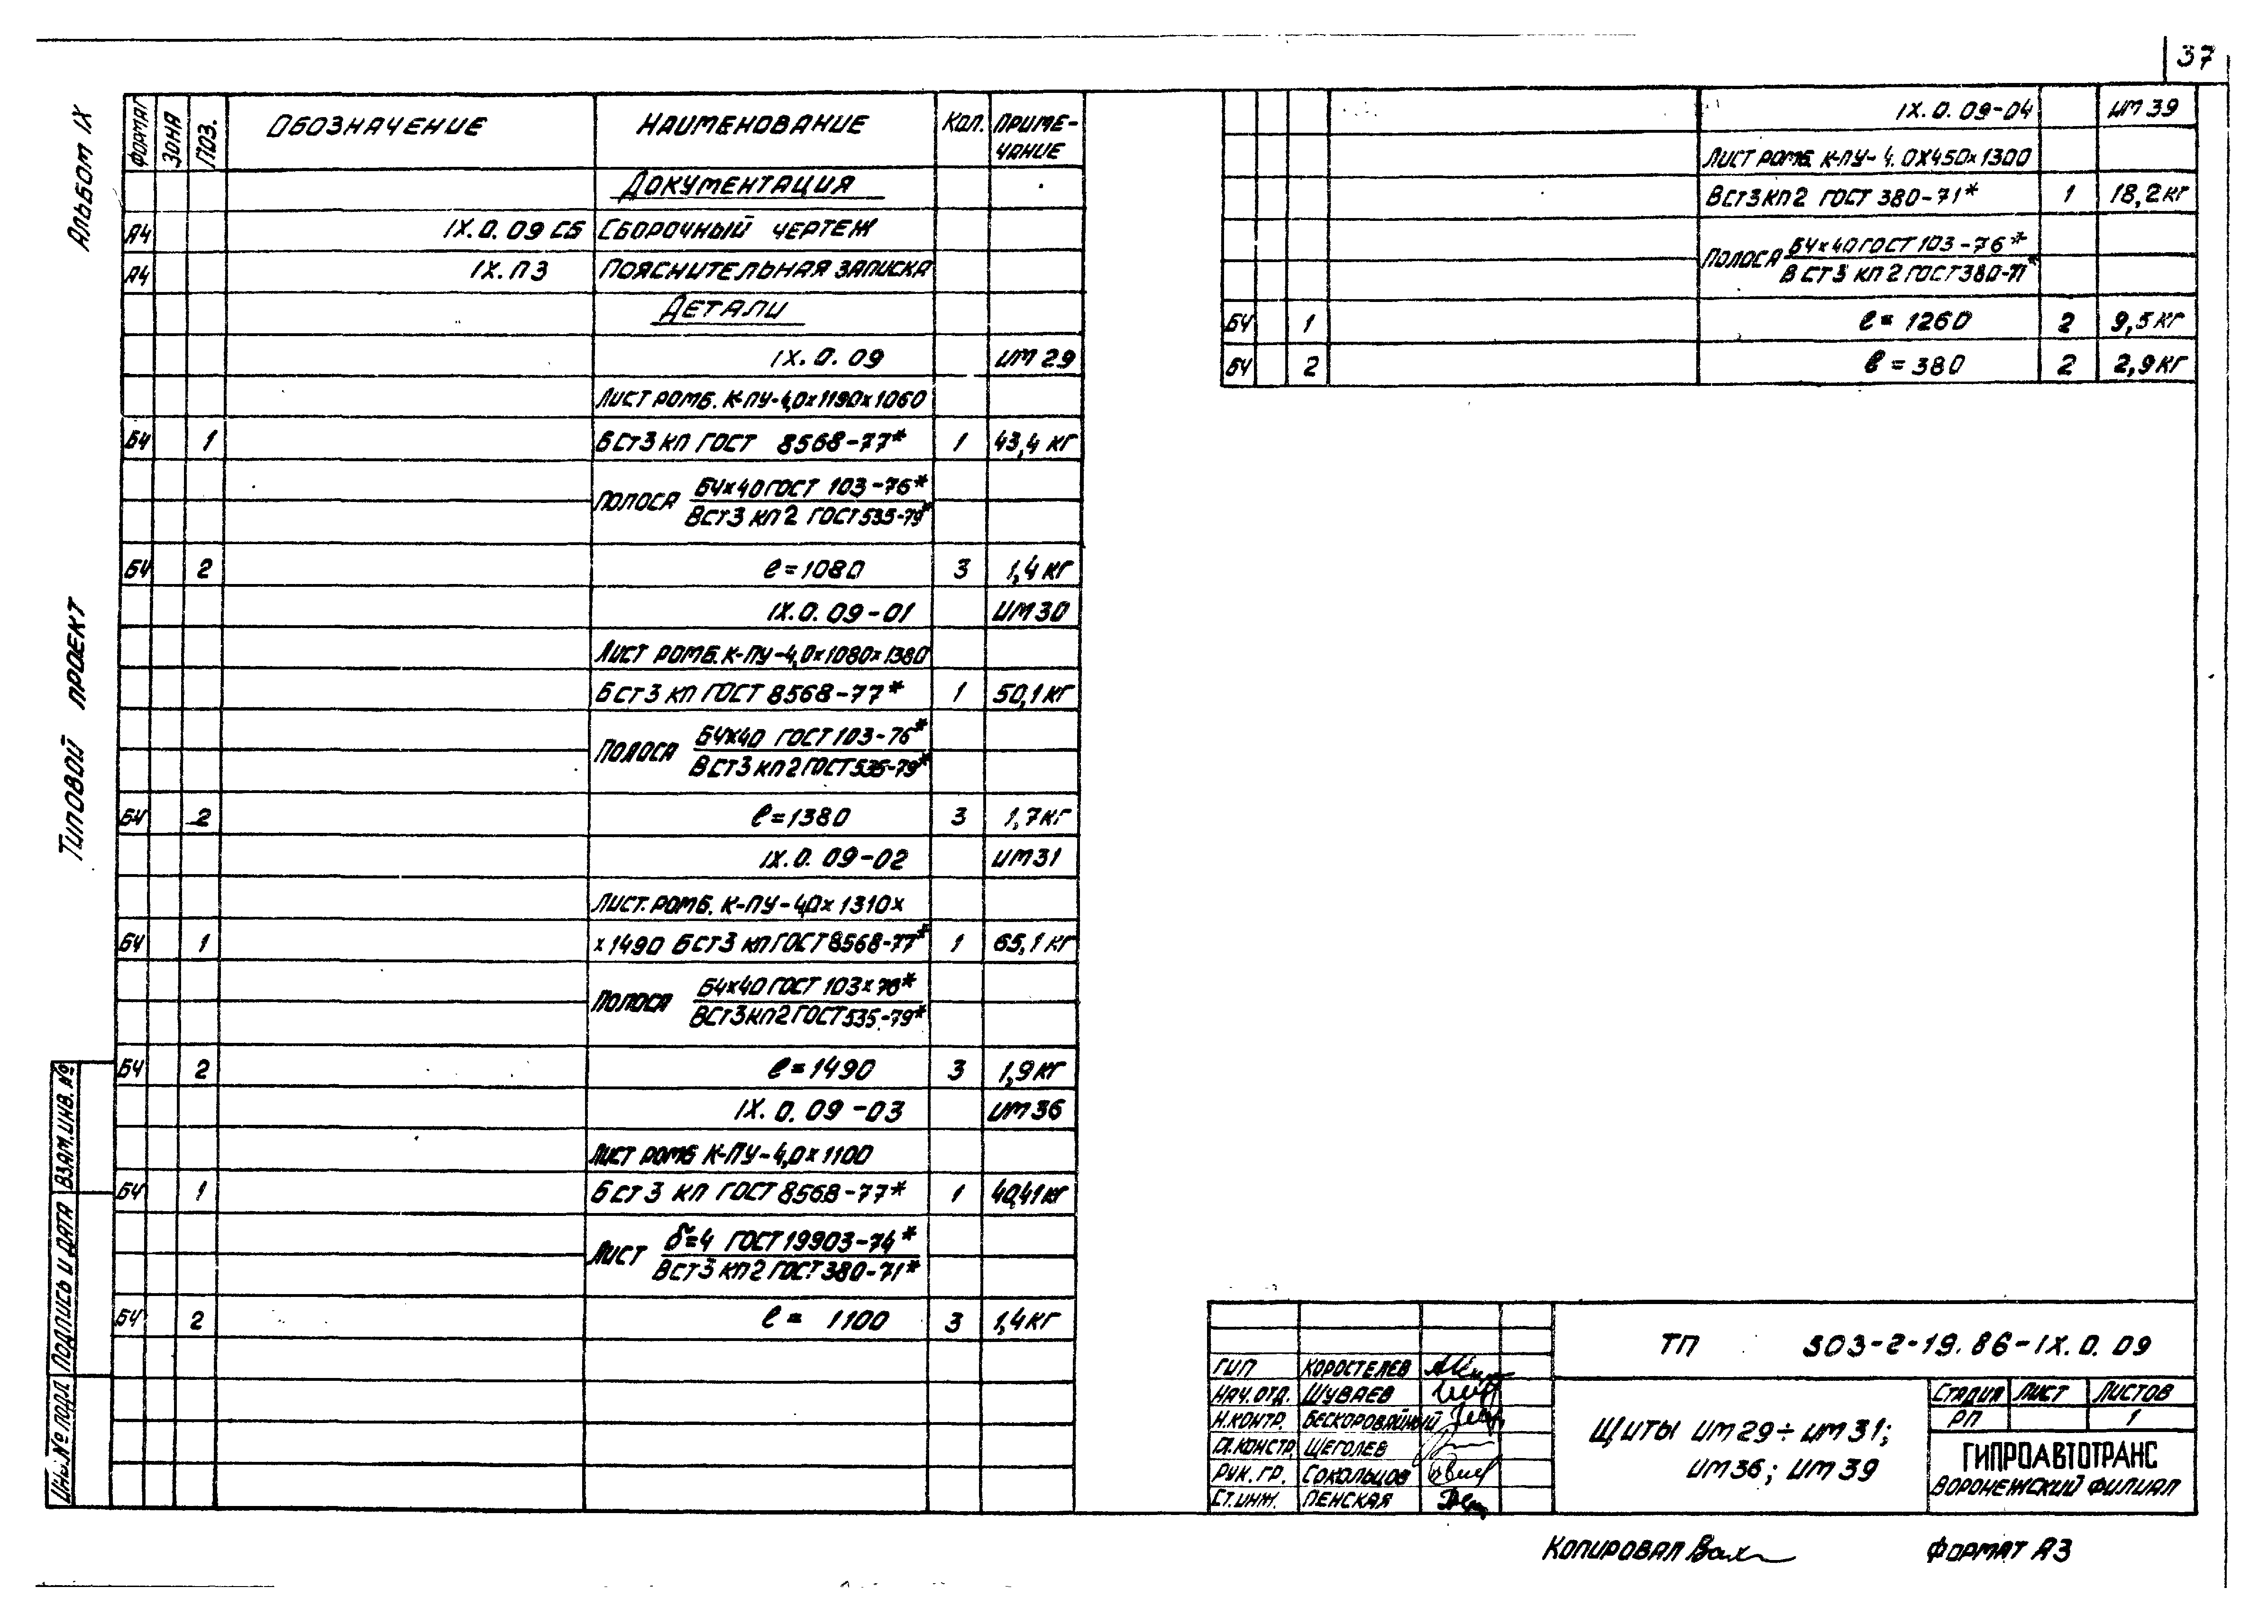 37
Альбом IX
Типовой проект
Формат Зона Поз. Обозначение Наименование Кол. Примечание
Документация
А4 IX.0.09 СБ Сборочный чертеж
А4 IX.ПЗ Пояснительная записка
Детали
IX.0.09 ИМ 29
Лист ромб. К-ПУ-4,0х1190х1060
БЧ 1 БСт3 кп ГОСТ 8568-77* 1 43,4 кг
Полоса Б4х40 ГОСТ 103-76*
ВСт3 кп2 ГОСТ 535-79*
БЧ 2 ℓ=1080 3 1,4 кг
IX.0.09-01 ИМ 30
Лист ромб. К-ПУ-4,0х1080х1380
БСт3 кп ГОСТ 8568-77* 1 50,1 кг
Полоса Б4х40 ГОСТ 103-76*
ВСт3 кп2 ГОСТ 535-79*
БЧ 2 ℓ=1380 3 1,7 кг
IX.0.09-02 ИМ 31
Лист. ромб. К-ПУ-4,0х1310х
БЧ 1 х1490 БСт3 кп ГОСТ 8568-77* 1 65,1 кг
Полоса Б4х40 ГОСТ 103х76*
ВСт3 кп2 ГОСТ 535-79*
БЧ 2 ℓ=1490 3 1,9 кг
IX.0.09-03 ИМ 36
Лист ромб К-ПУ-4,0х1100
БЧ 1 БСт3 кп ГОСТ 8568-77* 1 40,41 кг
Лист δ=4 ГОСТ 19903-74*
ВСт3 кп2 ГОСТ 380-71*
БЧ 2 ℓ= 1100 3 1,4 кг
IX.0.09-04 ИМ 39
Лист ромб. К-ПУ-4.0х450х1300
ВСт3кп2 ГОСТ 380-71* 1 18,2 кг
Полоса Б4х40 ГОСТ 103-76*
ВСт3 кп2 ГОСТ 380-71*
БЧ 1 ℓ= 1260 2 9,5 кг
БЧ 2 ℓ= 380 2 2,9 кг
Взам. инв. №
Подпись и дата
Инв. № подл
ТП 503-2-19.86-IX.0.09
ГИП Коростелев
Нач. отд. Шуваев
Н.контр. Бескоровайный
Гл.констр. Щеголев
Рук. гр. Сокольцов
Ст. инж. Пенская
Щиты ИМ 29÷ИМ 31;
ИМ 36; ИМ 39
Стадия Лист Листов
РП 1
ГИПРОАВТОТРАНС
Воронежский филиал
Копировал
Формат А3